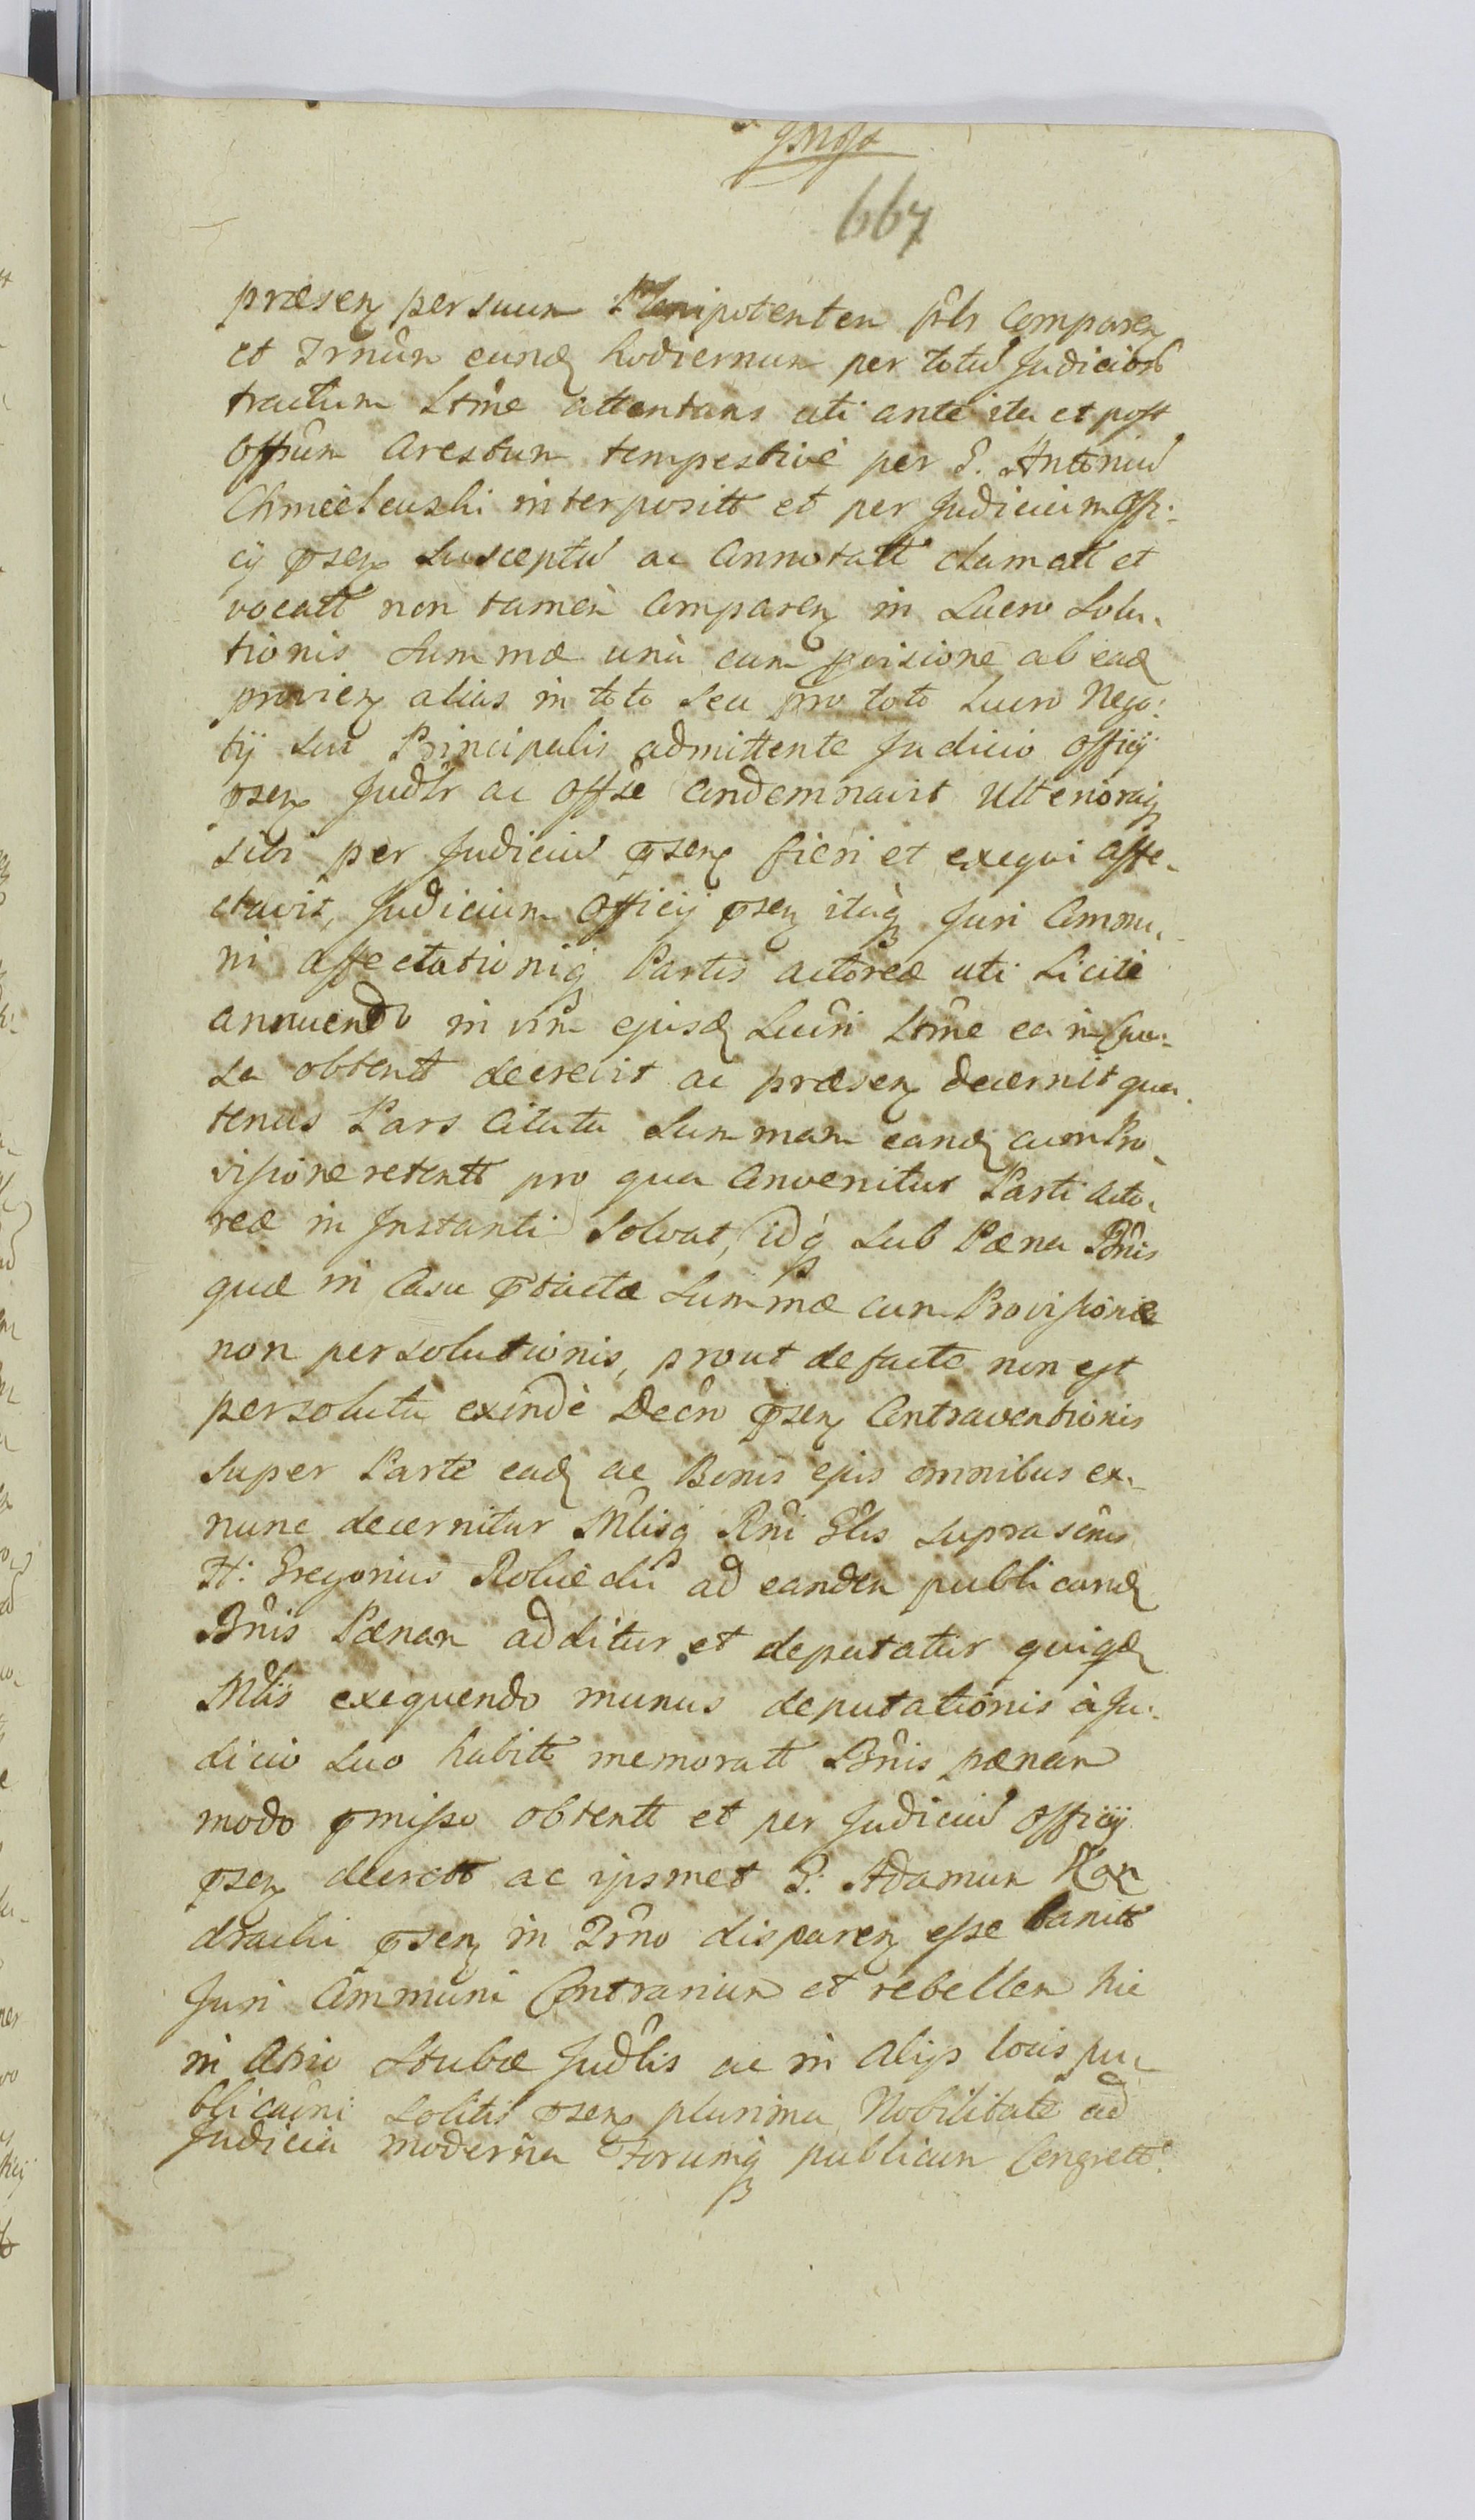 667
præsen per suum Plenipotentem pslr Comparen
et Trnũm eund hodiernum per totũ Judiciorũ
tractum Ltme attentans uti ante ita et post
Offsum Arestum tempestivè per G. Antoniũ
Chmielewski interpositt et per Judicium Offi:
cij psen susceptũ ac Annotatt clamatt et
vocatt non tamèn Comparen in Lucro Solu-
tionis Summæ unà cum pvisione ab ead
provien alias in toto seu pro toto Lucro Nego:
tij sui Principalis admittente Judicio Officij
psen Judlr ac Offse Condemnavit Ulterioraq
sibi per Judiciũ psen fieri et exequi affe-
ctavit, Judicium Officij psen itaq Juri Commu-
ni affectationiq Partis actoreæ uti Licitè
annuendo in vim ejusd Lucri Ltme ea in Cau:
sa obtentt decrevit ac præsen decernit qua-
tenus Pars Citata Summam eand cum Pro-
visione retentt pro qua Convenitur Parti Acto-
reæ in Instanti Solvat, idq sub Pæna Bnis
quæ in Casu ptactæ Summæ cum Provisione
non persolutionis, prout defacto non est
persoluta exindè Decro psen Contraventionis
Super Parte ead ac Bonis ejus omnibus ex-
nunc decernitur Mlisq Rni Glis supra scrius
H: Gregorius ad eandem publicand
Bnis Pænam additur et deputatur quiqd
Mlis exequendo munus deputationis à Ju-
dicio suo habitt memoratt Bnis pænam
modo pmisso obtentt et per Judiciũ Officij
psen decrett ac ipsmet G. Adamum Kon
dracki psen in Trno disparen esse banitt
Juri Communi Contrarium et rebellem hic
in Atrio Stubæ Judlis ac in alijs locis pu-
blicãrni solitis psen plurima Nobilitate ad
Judicia moderna Forumq publicum Congrett: